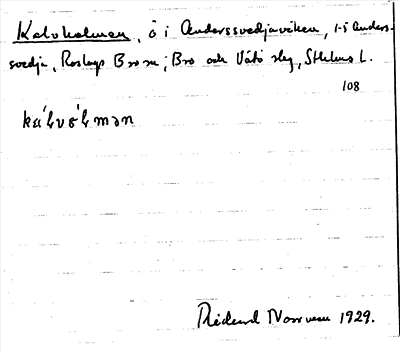 Kalvholmen, ö i Anderssvedjaviken, 1-5 Anders-
svedja, Roslags Bro sn; Bro och Vätö slg, Sthlms l.
108
Rickard 1929.